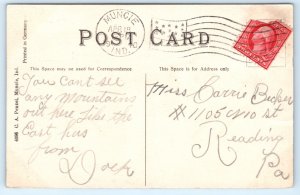 MUNCIE
IND.
POST CARD
This Space may be used for Correspondence.
This Space is for Address only.
Printed in Germany
You Cant see
any Mountains
out here Like the
Last
from
Miss Carrie
#1105 N 10 St
Reading
Pa